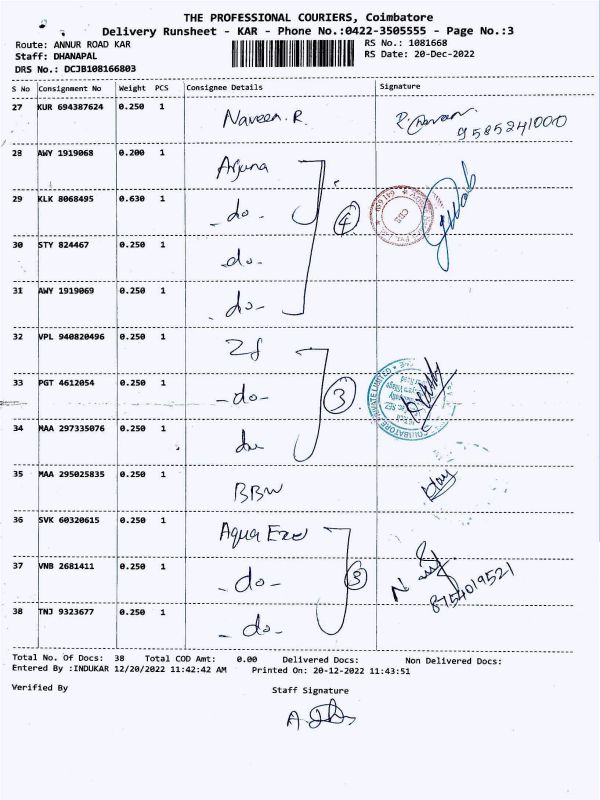 THE PROFESSIONAL COURIERS, Coimbatore
Delivery Runsheet - KAR - Phone No.:0422-3505555 - Page No.:3
Route: ANNUR ROAD KAR RS No.: 1081668
Staff: DHANAPAL RS Date: 20-Dec-2022
DRS No.: DCJB108166803
S No Consignment No Weight PCS Consignee Details Signature
27 KUR 694387624 0.250 1 Naveen. R. 9585241000
28 AWY 1919068 0.200 1 Arjuna
29 KLK 8068495 0.630 1 - do - 4
30 STY 824467 0.250 1 - do -
31 AWY 1919069 0.250 1 - do -
32 VPL 940820496 0.250 1 Zf
33 PGT 4612054 0.250 1 - do - 3
34 MAA 297335076 0.250 1 do
35 MAA 295025835 0.250 1 BBW
36 SVK 60320615 0.250 1 Aqua
37 VNB 2681411 0.250 1 - do - 3 8754019521
38 TNJ 9323677 0.250 1 - do -
Total No. Of Docs: 38 Total COD Amt: 0.00 Delivered Docs: Non Delivered Docs:
Entered By :INDUKAR 12/20/2022 11:42:42 AM Printed On: 20-12-2022 11:43:51
Verified By Staff Signature